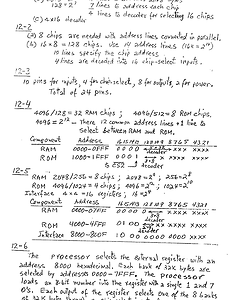 128=2⁷ 7 lines to address each chip
4 lines to decoder for selecting 16 chips
(c) 4x16 decoder
12-2
(a) 8 chips are needed with address lines connected in parallel.
(b) 16 x 8 = 128 chips. Use 14 address lines (16k = 2¹⁴)
10 lines specify the chip address
4 lines are decoded into 16 chip-select inputs.
12-3
10 pins for inputs, 4 for chip-select, 8 for outputs, 2 for power.
Total of 24 pins.
12-4
4096/128 = 32 RAM chips; 4096/512 = 8 ROM chips.
4096 = 2¹² There 12 common address lines +1 line to
select between RAM and ROM.
Component Address 16 15 14 13 12 11 10 9 8765 4321
RAM 0000-0FFF 0000
ROM 1000-1FFF 0001
decoder
12-5
RAM 2048/256 = 8 chips; 2048 = 2¹¹; 256 = 2⁸
ROM 4096/1024 = 4 chips; 4096 = 2¹²; 1024 = 2¹⁰
Interface 4x4 = 16 registers; 16 = 2⁴
Component Address 16 15 14 13 12 11 10 9 8765 4321
RAM 0000-07FF 0000
decoder
ROM 4000-4FFF 0100
decoder
Interface 8000-800F 1000 0000 0000 xxxx
12-6
The processor selects the external register with an
address 8000 hexadecimal. Each bank of 32K bytes are
selected by address 0000-7FFF. The processor
loads an 8-bit number into the register with a single 1 and 7
0's. Each output of the register selects one of the 8 banks